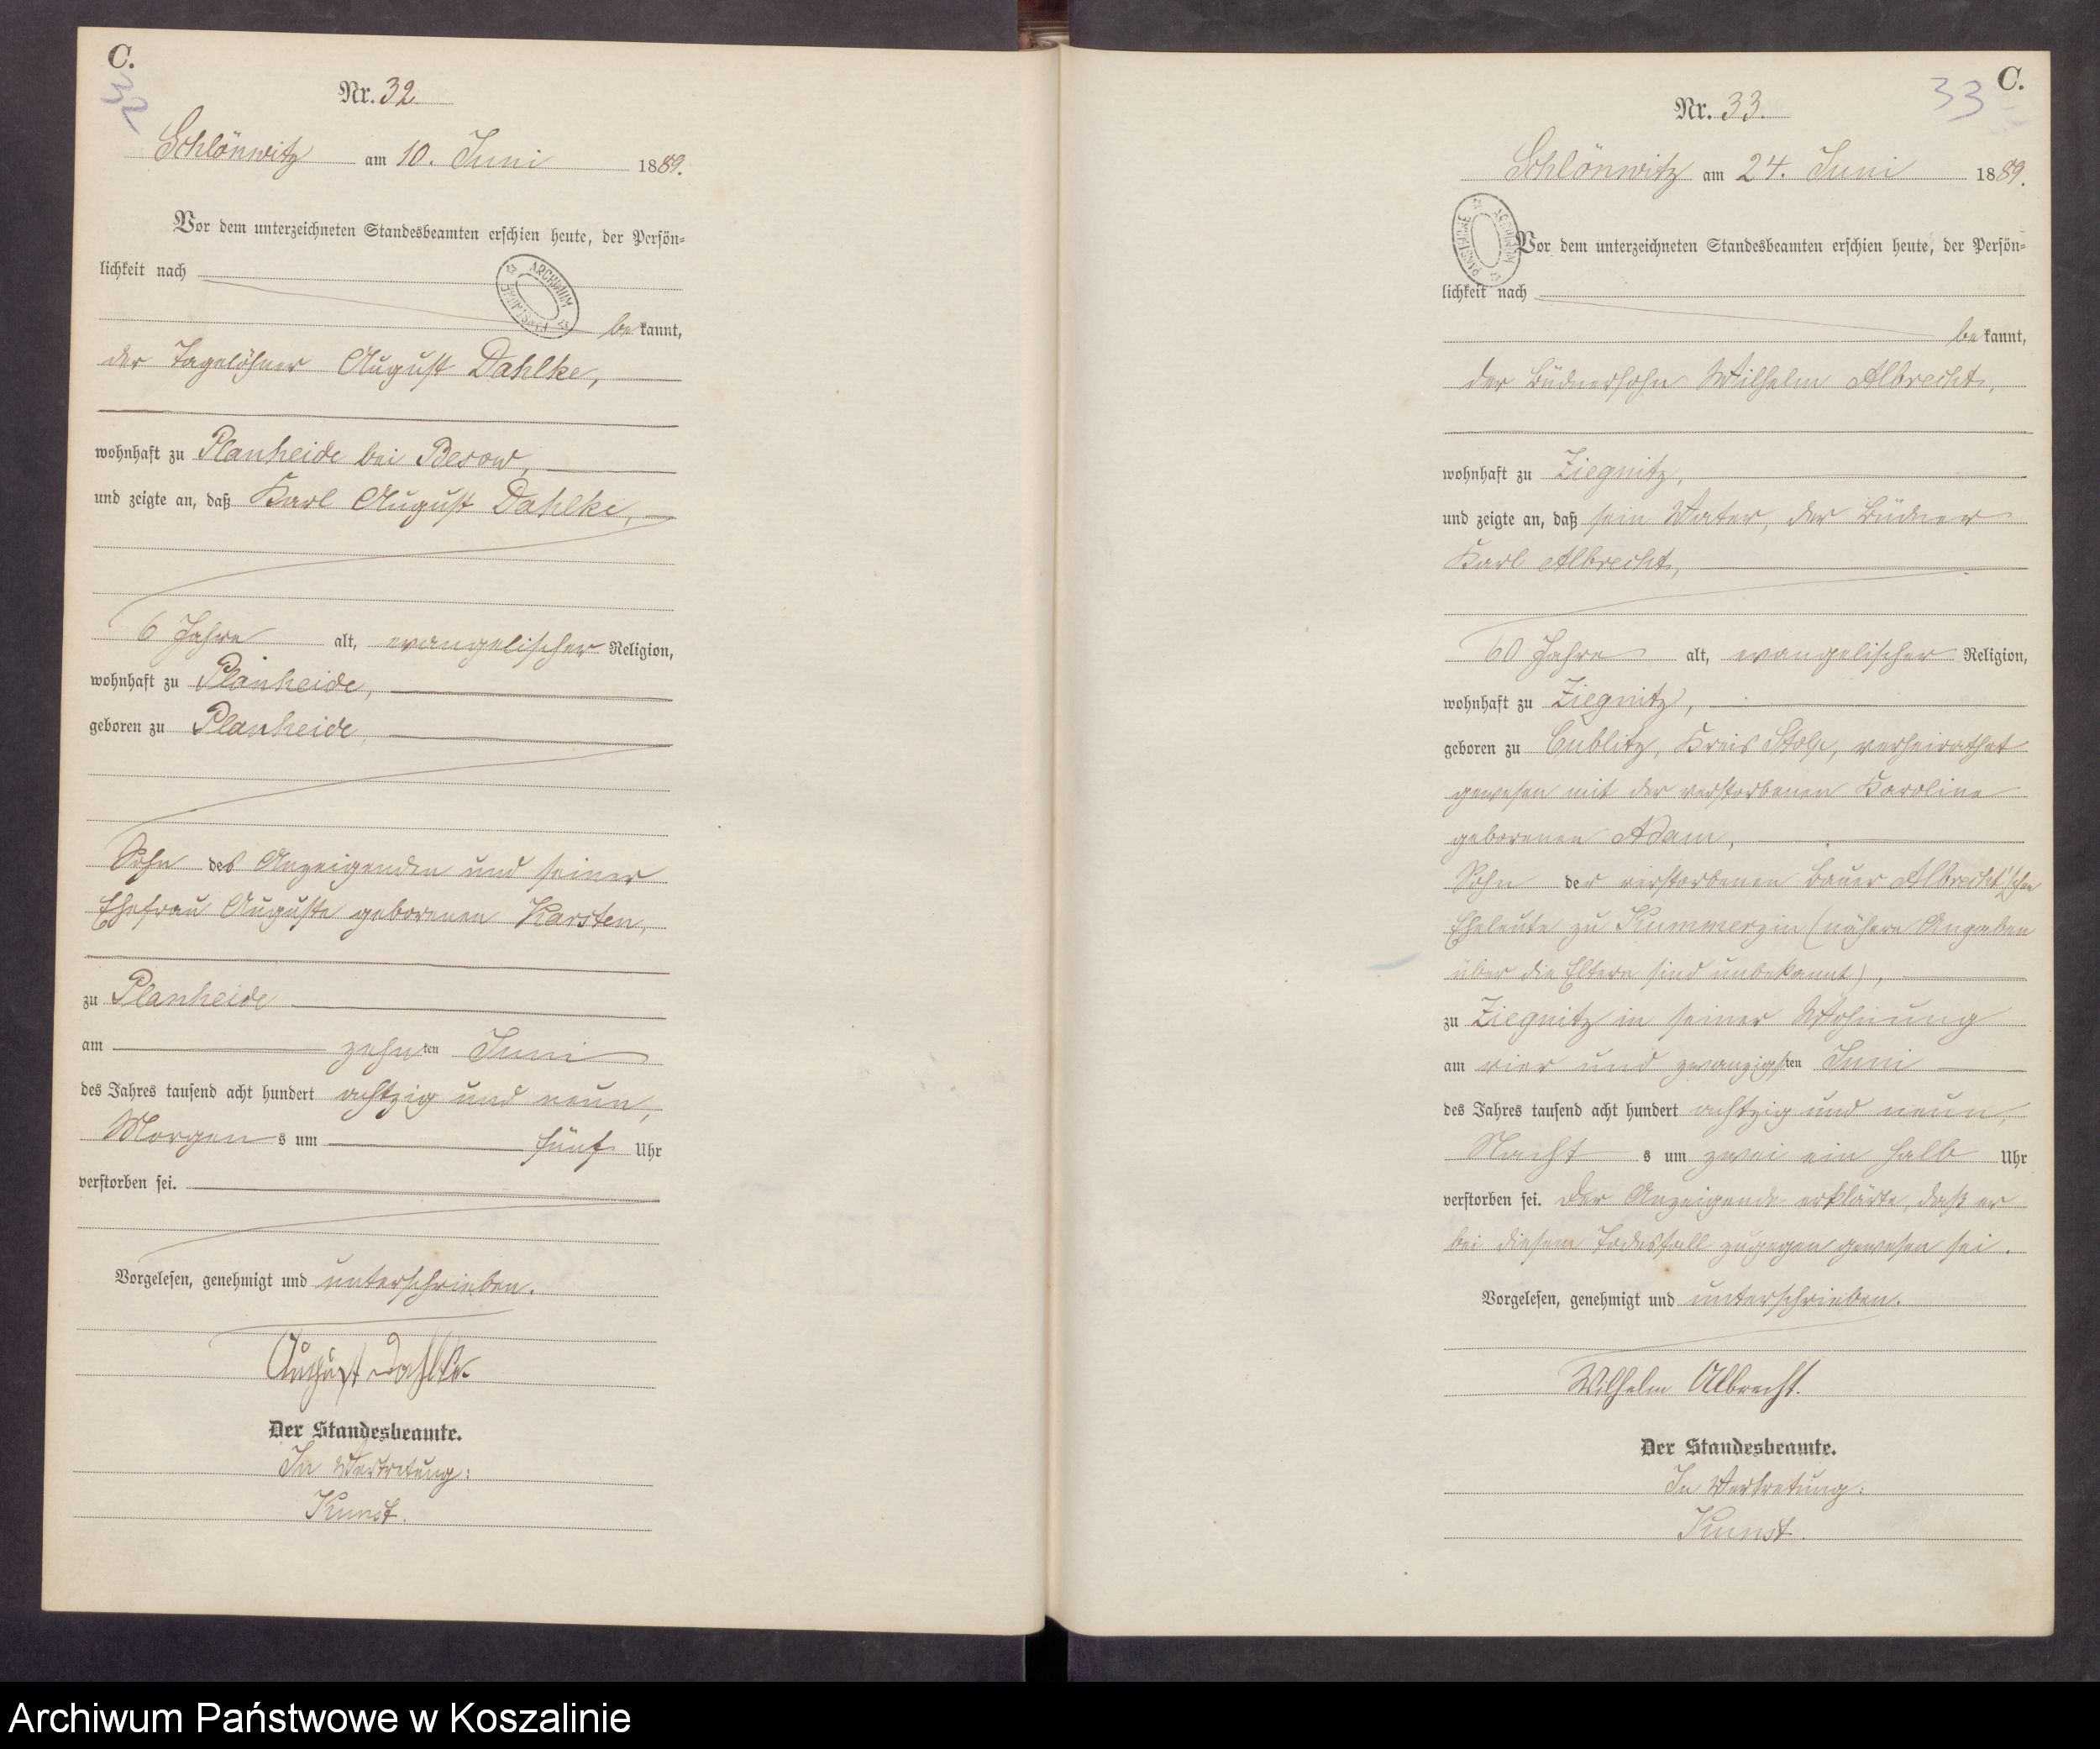 C.
32
Nr. 32
Schlönwitz am 10. Juni 1889.
Vor dem unterzeichneten Standesbeamten erschien heute, der Persön=
lichkeit nach
be kannt,
der Tagelöhner August Dahlke,
wohnhaft zu Planheide bei Besow,
und zeigte an, daß Karl August Dahlke,
6 Jahre alt, evangelischer Religion,
wohnhaft zu Planheide,
geboren zu Planheide,
Sohn des Anzeigenden und seiner
Ehefrau Auguste geborenen Karsten,
zu Planheide
am zehnten Juni
des Jahres tausend acht hundert achtzig und neun,
Morgen s um fünf Uhr
verstorben sei.
Vorgelesen, genehmigt und unterschrieben.
August Dahlke
Der Standesbeamte.
In Vertretung:
Kunst.
33 C.
Nr. 33.
Schlönwitz am 24. Juni 1889.
ARCHIWUM PAŃSTWOWE
Vor dem unterzeichneten Standesbeamten erschien heute, der Persön=
lichkeit nach
be kannt,
der Büdnersohn Wilhelm Albrecht,
wohnhaft zu Ziegnitz,
und zeigte an, daß sein Vater, der Büdner
Karl Albrecht,
60 Jahre alt, evangelischer Religion,
wohnhaft zu Ziegnitz,
geboren zu Cublitz, Kreis Stolp, verheirathet
gewesen mit der verstorbenen Karoline
geborenen Adam,
Sohn der verstorbenen Bauer Albrecht'schen
Eheleute zu Kummerzin (nähere Angaben
über die Eltern sind unbekannt),
zu Ziegnitz in seiner Wohnung
am vier und zwanzigsten Juni
des Jahres tausend acht hundert achtzig und neun,
Nacht s um zwei ein halb Uhr
verstorben sei. Der Anzeigende erklärte, daß er
bei diesem Todesfall zugegen gewesen sei.
Vorgelesen, genehmigt und unterschrieben.
Wilhelm Albrecht.
Der Standesbeamte.
In Vertretung:
Kunst.
Archiwum Państwowe w Koszalinie